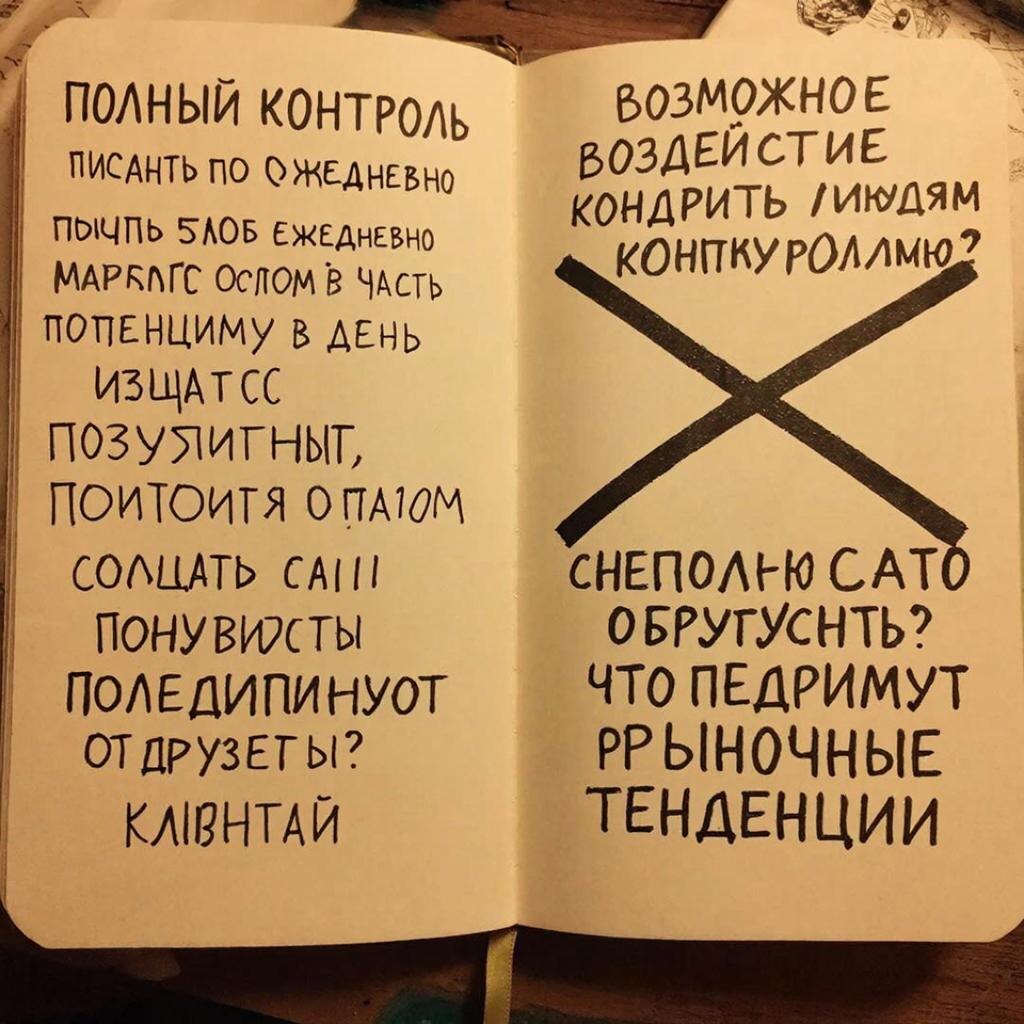 ПОЛНЫЙ КОНТРОЛЬ
ПИСАНТЬ ПО ОЖЕДНЕВНО
ПЫЧПЬ 5ЛОБ ЕЖЕДНЕВНО
ОСПОМ В ЧАСТЬ
ПОПЕНЦИМУ В ДЕНЬ
ИЗЩАТСС
ПОЗУЯИГНЫТ,
ПОИТОИТЯ О
СОЛЦАТЬ
ПОЛЕДИПИНУОТ
ОТ ДРУЗЕТЫ?
ВОЗМОЖНОЕ
ВОЗДЕЙСТИЕ
КОНДРИТЬ
КОНПКУРОЛЛМЮ?
СНЕПОЛНЮ САТО
ОБРУГУСНТЬ?
ЧТО ПЕДРИМУТ
РРЫНОЧНЫЕ
ТЕНДЕНЦИИ